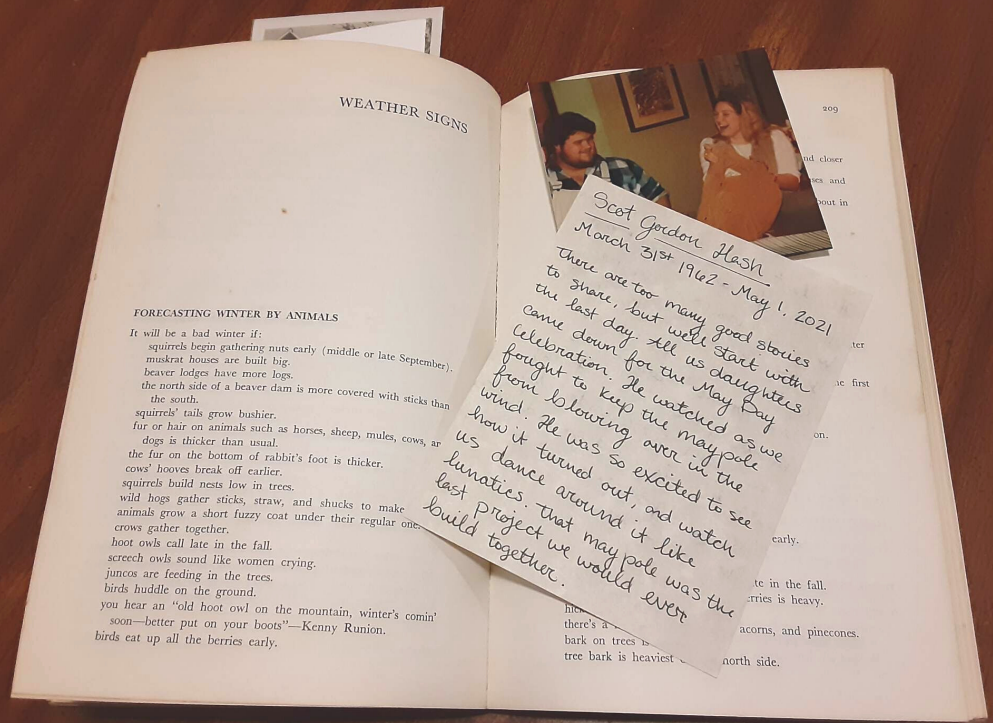 WEATHER SIGNS
FORECASTING WINTER BY ANIMALS
It will be a bad winter if:
squirrels begin gathering nuts early (middle or late September).
muskrat houses are built big.
beaver lodges have more logs.
the north side of a beaver dam is more covered with sticks than
the south.
squirrels' tails grow bushier.
fur or hair on animals such as horses, sheep, mules, cows, ar
dogs is thicker than usual.
the fur on the bottom of rabbit's foot is thicker.
cows' hooves break off earlier.
squirrels build nests low in trees.
wild hogs gather sticks, straw, and shucks to make
animals grow a short fuzzy coat under their regular one.
crows gather together.
hoot owls call late in the fall.
screech owls sound like women crying.
juncos are feeding in the trees.
birds huddle on the ground.
you hear an "old hoot owl on the mountain, winter's comin'
soon—better put on your boots"—Kenny Runion.
birds eat up all the berries early.
209
closer
and
out in
Scot Gordon Hash
March 31st 1962 - May 1, 2021
There are too many good stories
to share, but we'll start with
the last day. All us daughters
came down for the May Day
Celebration. He watched as we
fought to keep the maypole
from blowing over in the
wind. He was so excited to see
how it turned out, and watch
us dance around it like
lunatics. That maypole was the
last project we would ever
build together.
first
early.
in the fall.
is heavy.
there's a
acorns, and pinecones.
bark on trees
tree bark is heaviest
north side.